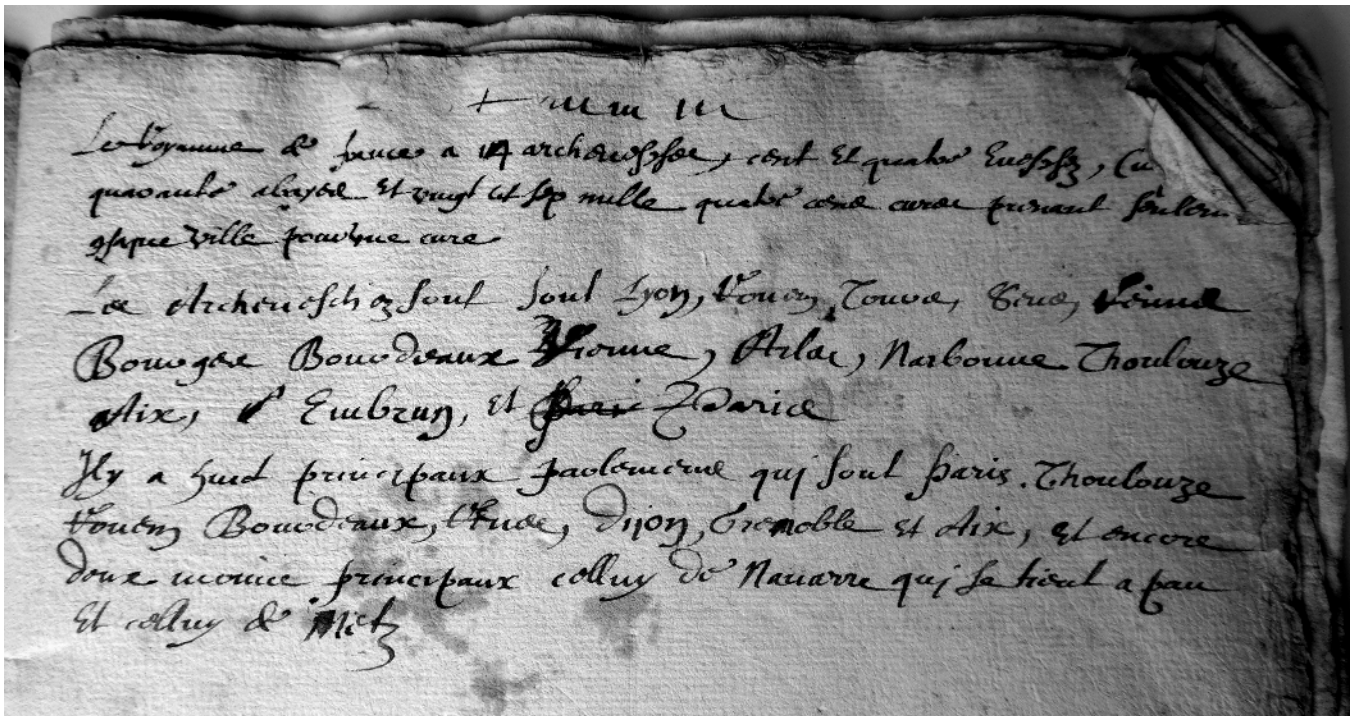 Le Royaume de france a 14 archeuesches, cent et quatre Eueschez,
quarante abayes et vingt et sep mille quatre cens cures prenant seulem
chaque ville pour une cure
Les Archeueschez sont sont Lyon, Rouen, Tours, Sens, Reims
Bourges Bourdeaux Vienne, Arles, Narbonne Thoulouze
Aix, Embrun, et Paris Paris
Il y a huict principaux parlemens qui sont Paris. Thoulouze
Rouen Bourdeaux, Renes, Dijon, Grenoble et Aix, et encore
deux moins principaux celluy de Nauarre qui se tient a pau
Et celluy de Metz